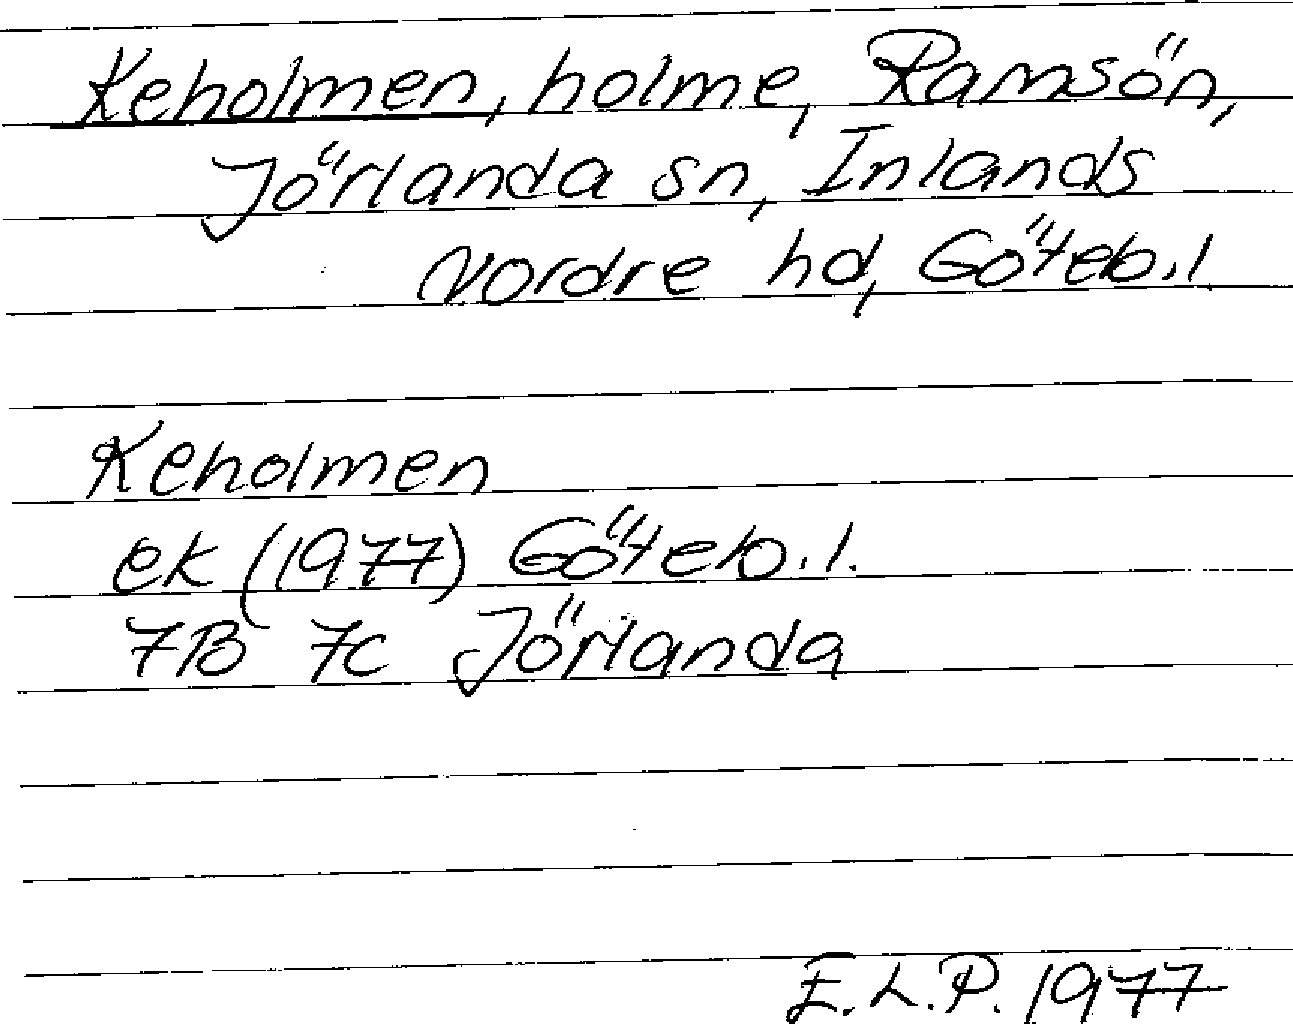 Keholmen, holme, Ramsön,
Jörlanda sn, Inlands
Nordre hd, Göteb.l.
Keholmen
ek (1977) Göteb.l.
7B 7c Jörlanda
E.L.P. 1977